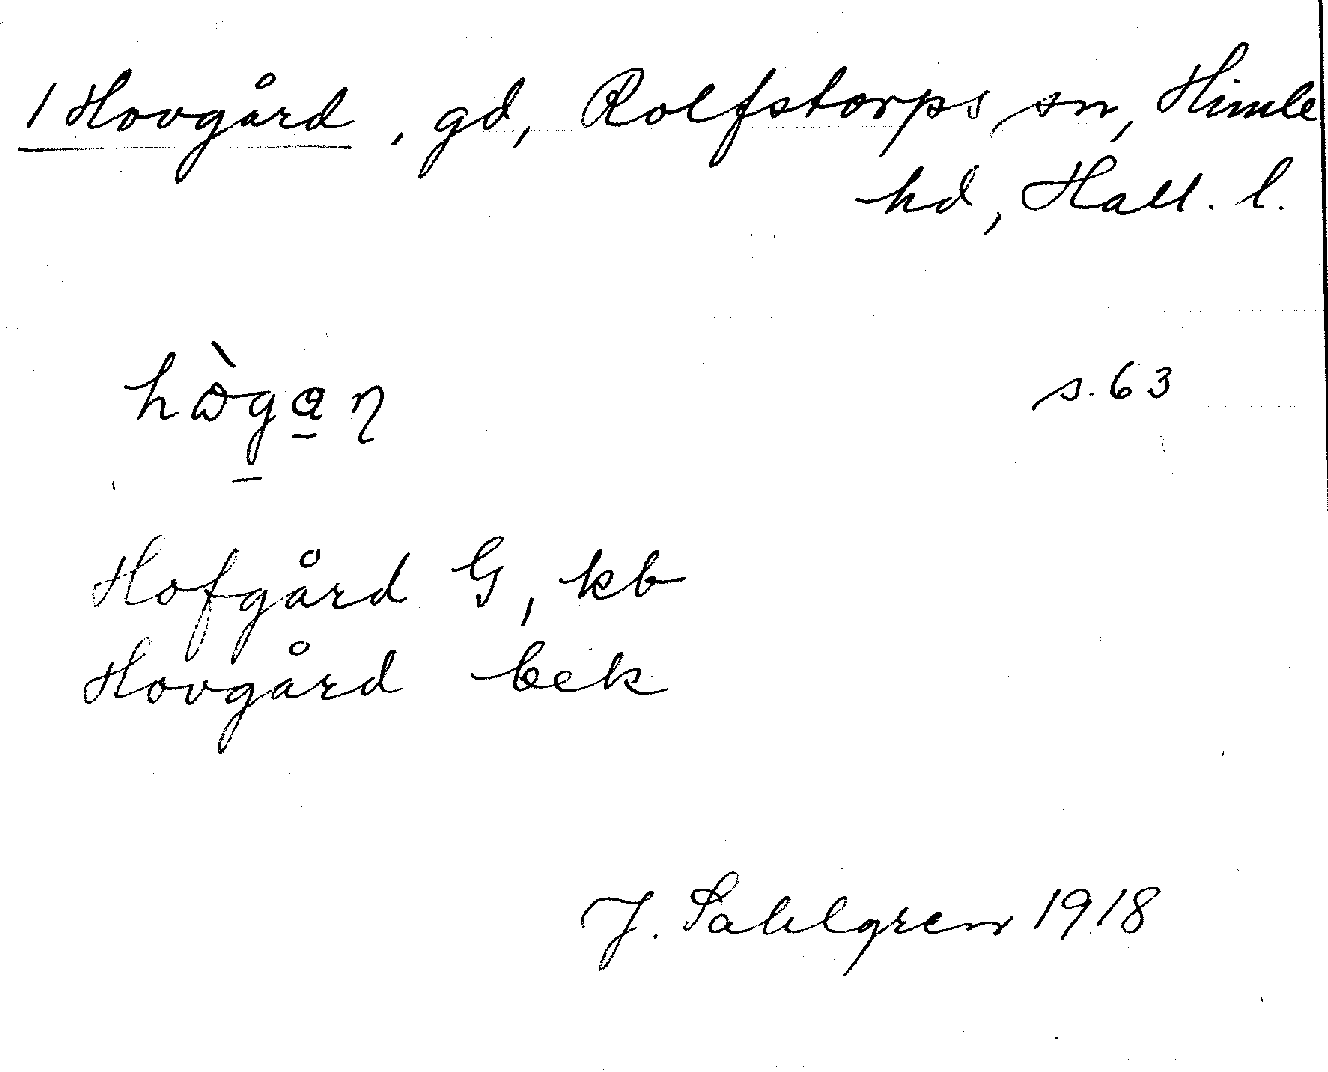 1 Hovgård, gd, Rolfstorps sn, Himle
hd, Hall. l.
s. 63
Hofgård G, kb
Hovgård bek
J. Sahlgren 1918